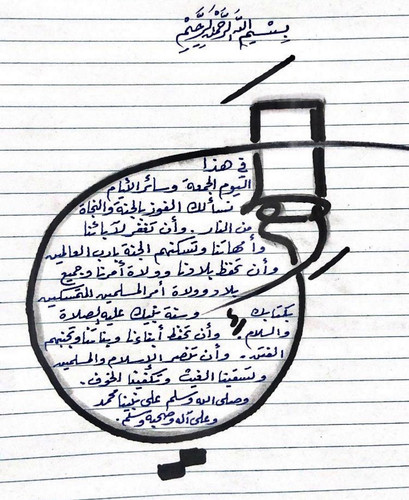 بِسْمِ اللهِ الرَّحْمٰنِ الرَّحِيْمِ
في هذا
اليوم الجمعة وسائر الأيام
نسألك الفوز بالجنة والنجاة
من النار. وأن تغفر لآبائنا
وأمهاتنا وتسكنهم الجنة يارب العالمين
وأن تحفظ بلادنا وولاة أمرنا وجميع
بلاد وولاة أمر المسلمين المتمسكين
بكتابك وسنة نبيك عليه الصلاة
والسلام. وأن تحفظ أبناءنا وبناتنا وتجنبهم
الفتن. وأن تنصر الإسلام والمسلمين
وتسقينا الغيث وتكفينا الخوف.
وصلى الله وسلم على نبينا محمد
وعلى آله وصحبه وسلم.